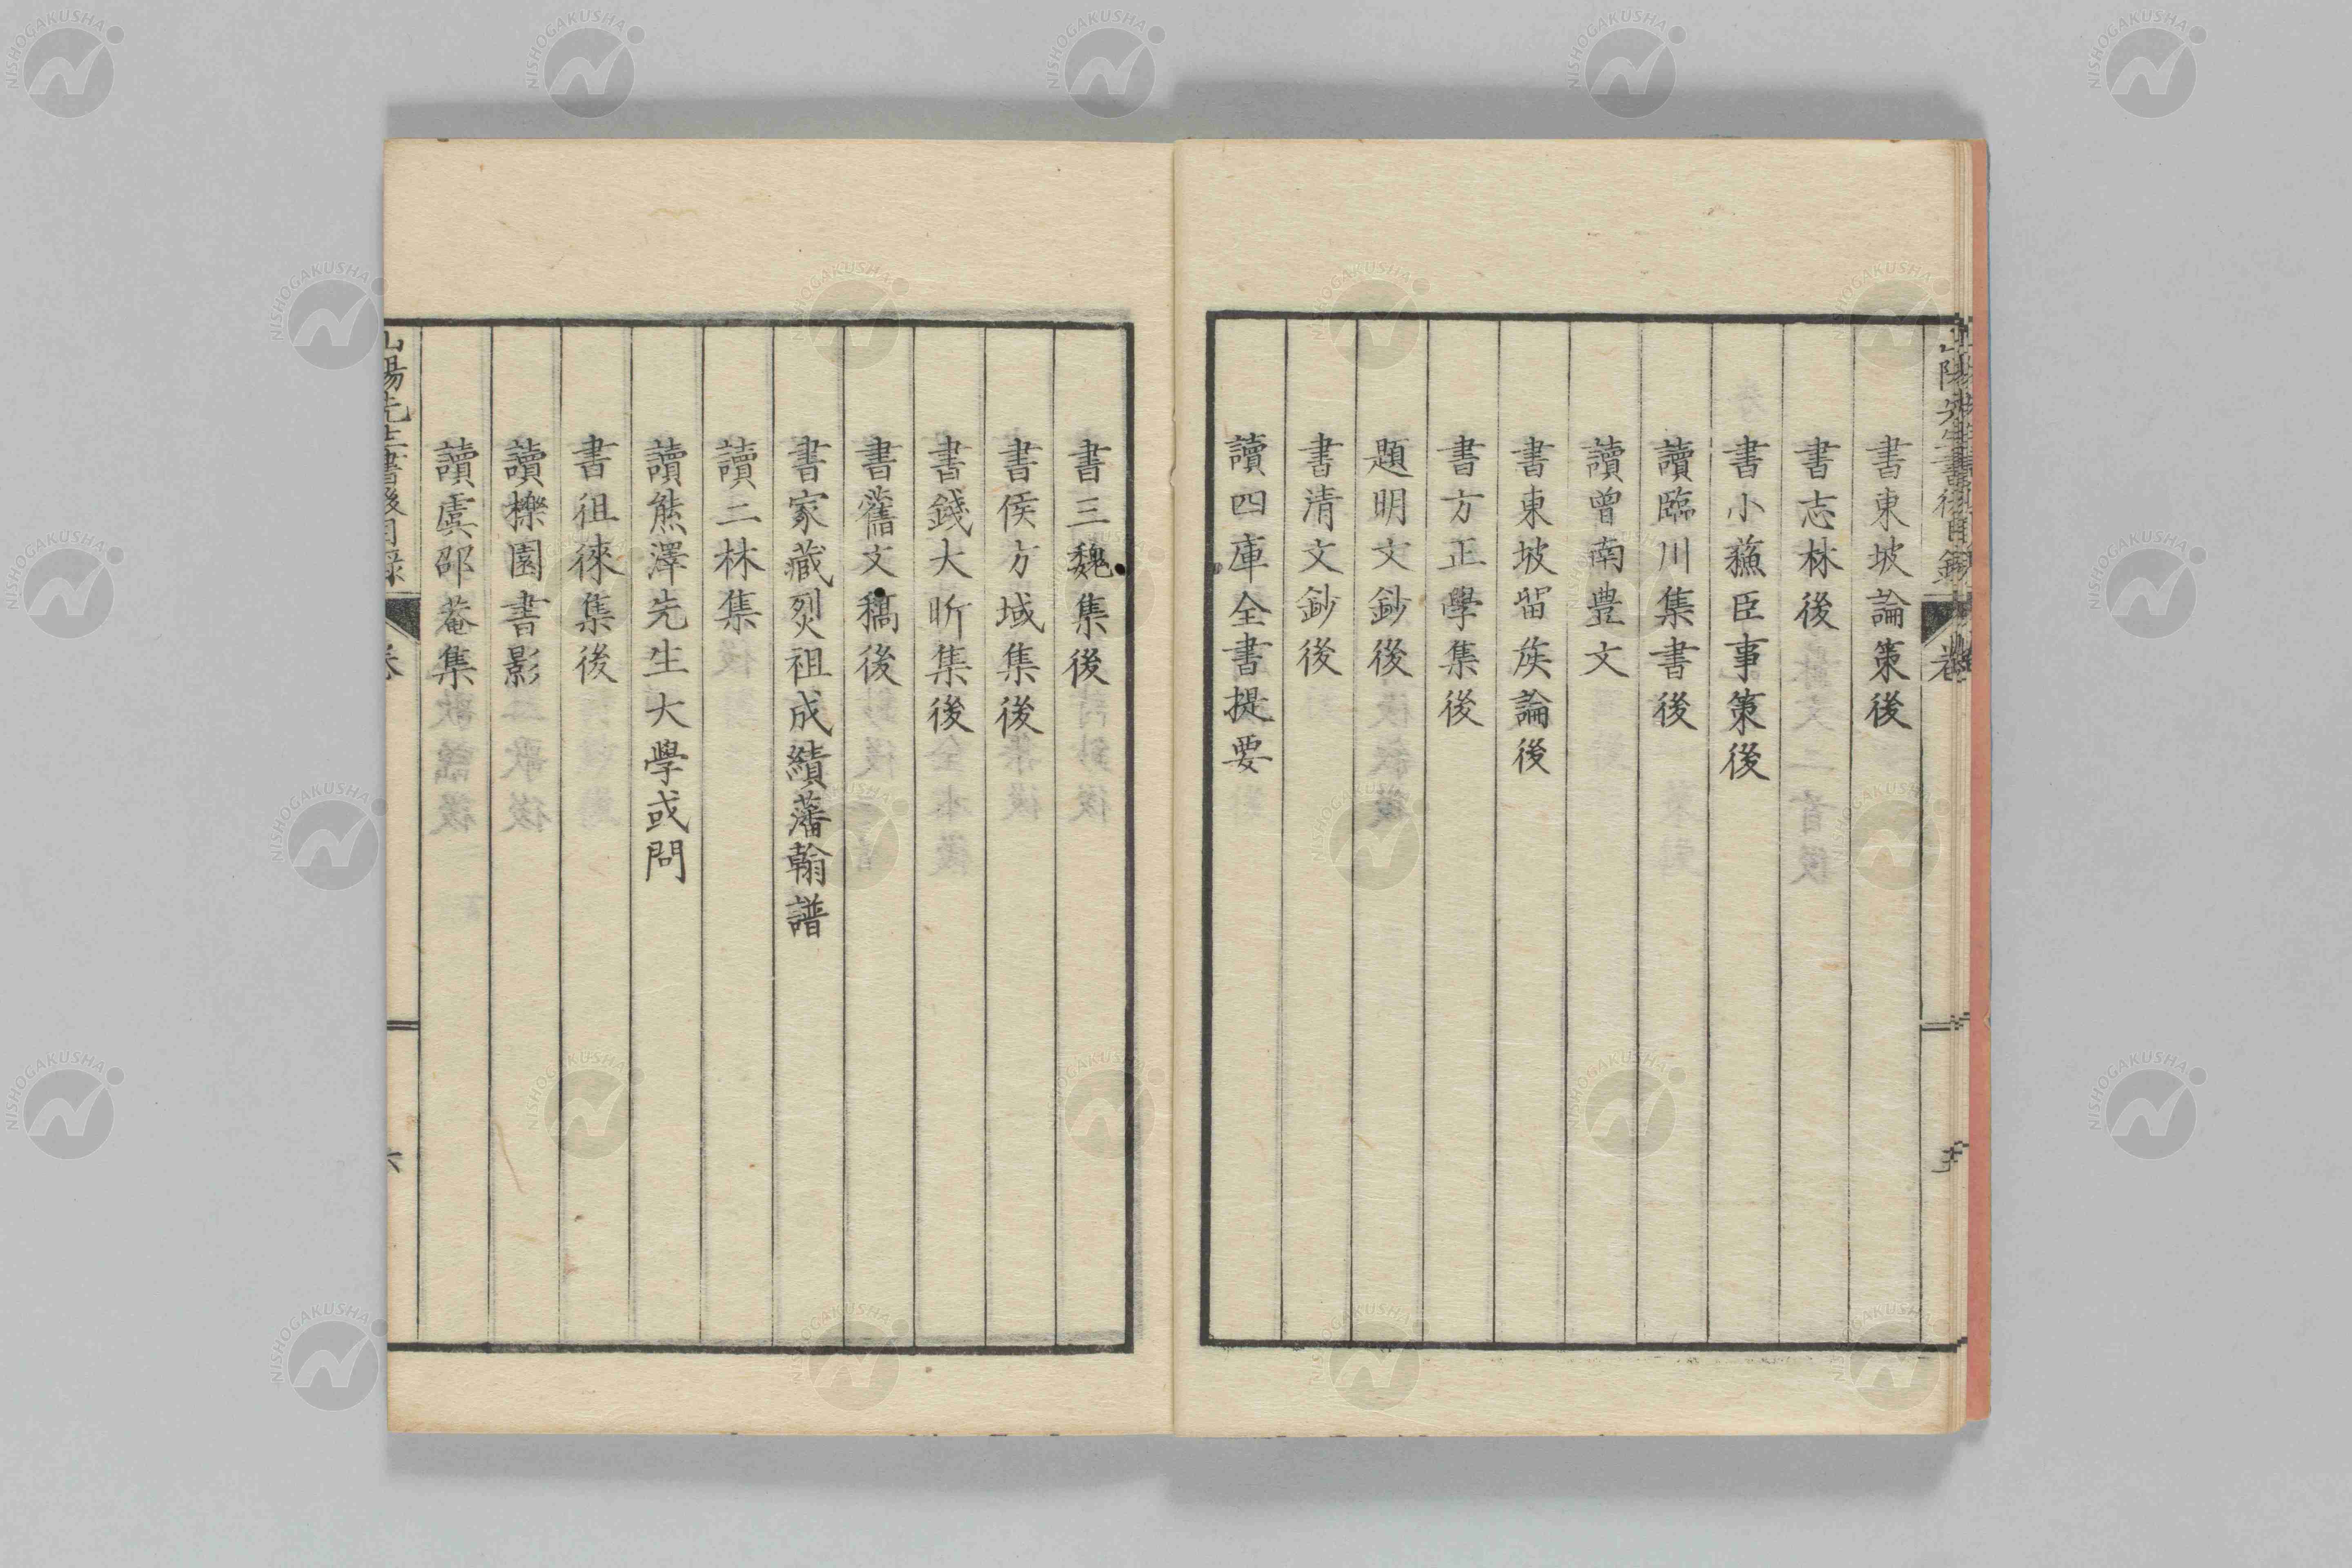 山陽先生書後目錄
書東坡論策後
書志林後
書小蘓臣事策後
讀臨川集書後
讀曾南豊文
書東坡留矦論後
書方正學集後
題明文鈔後
書清文鈔後
讀四庫全書提要
書三魏集後
書侯方域集後
書錢大昕集後
書舊文稿後
書家藏烈祖成績藩翰譜
讀二林集
讀熊澤先生大學或問
書徂徠集後
讀櫟園書影
讀虞邵菴集
山陽先生書後目錄
卷
六
NISHOGAKUSHA